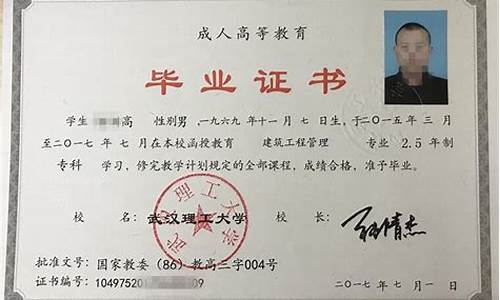 成人高等教育
毕业证书
学生 高 性别男，一九六九年十一月七日生，于二〇一五年三月
至二〇一七年七月在本校函授教育 建筑工程管理 专业 2.5 年制
专科 学习，修完教学计划规定的全部课程，成绩合格，准予毕业。
校 名：武汉理工大学 校 长：
武汉理工大学
批准文号：国家教委（86）教高三字004号
证书编号：104975201 09 二〇一七年七月一日